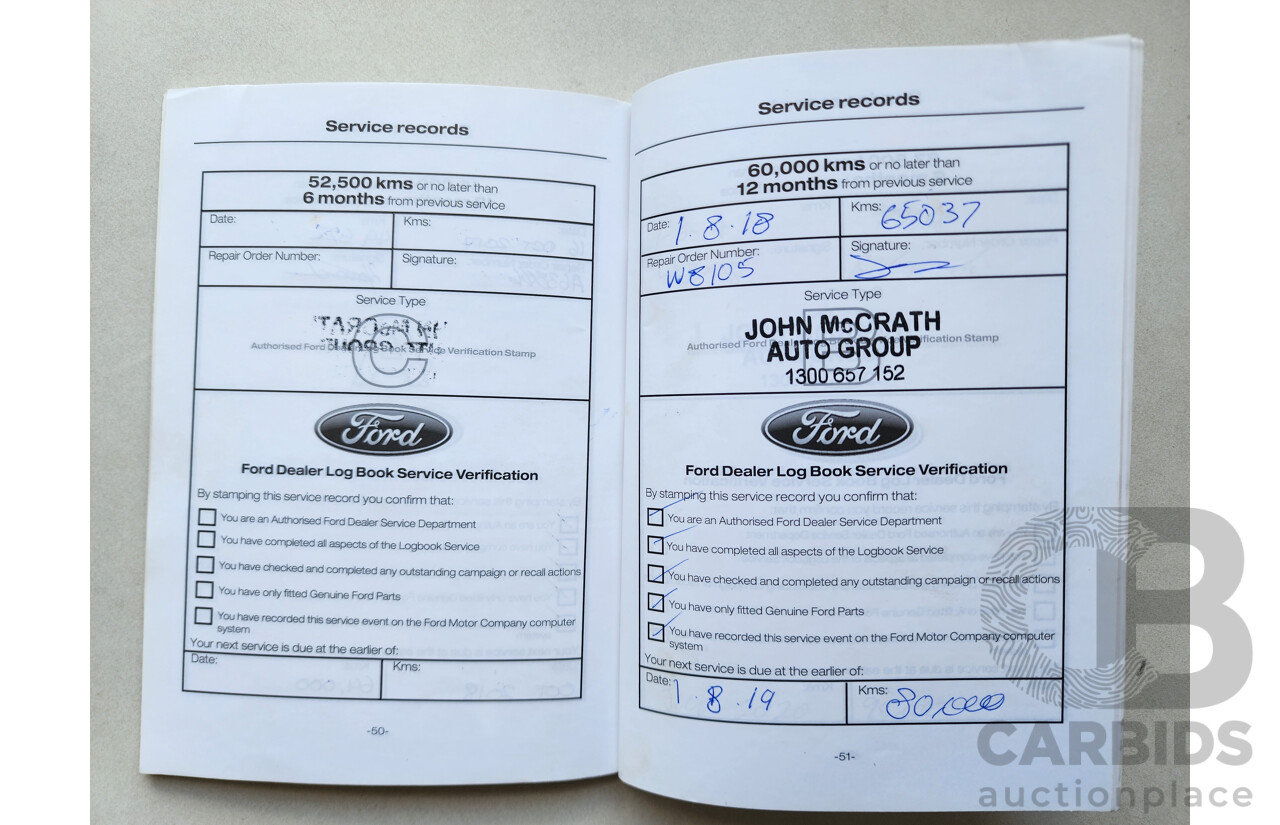 Service records
52,500 kms or no later than
6 months from previous service
Date:
Kms:
Repair Order Number:
Signature:
Service Type
C
Authorised Ford Dealer Log Book Service Verification Stamp
Ford
Ford Dealer Log Book Service Verification
By stamping this service record you confirm that:
You are an Authorised Ford Dealer Service Department
You have completed all aspects of the Logbook Service
You have checked and completed any outstanding campaign or recall actions
You have only fitted Genuine Ford Parts
You have recorded this service event on the Ford Motor Company computer
system
Your next service is due at the earlier of:
Date:
Kms:
-50-
Service records
60,000 kms or no later than
12 months from previous service
Date: 1.8.18
Kms: 65037
Repair Order Number:
W8105
Signature:
Service Type
B
JOHN McCRATH
Authorised Ford Verification Stamp
AUTO GROUP
1300 657 152
Ford
Ford Dealer Log Book Service Verification
By stamping this service record you confirm that:
You are an Authorised Ford Dealer Service Department
You have completed all aspects of the Logbook Service
You have checked and completed any outstanding campaign or recall actions
You have only fitted Genuine Ford Parts
You have recorded this service event on the Ford Motor Company computer
system
Your next service is due at the earlier of:
Date: 1.8.19
Kms: 80,000
-51-
CB
CARBIDS
auctionplace